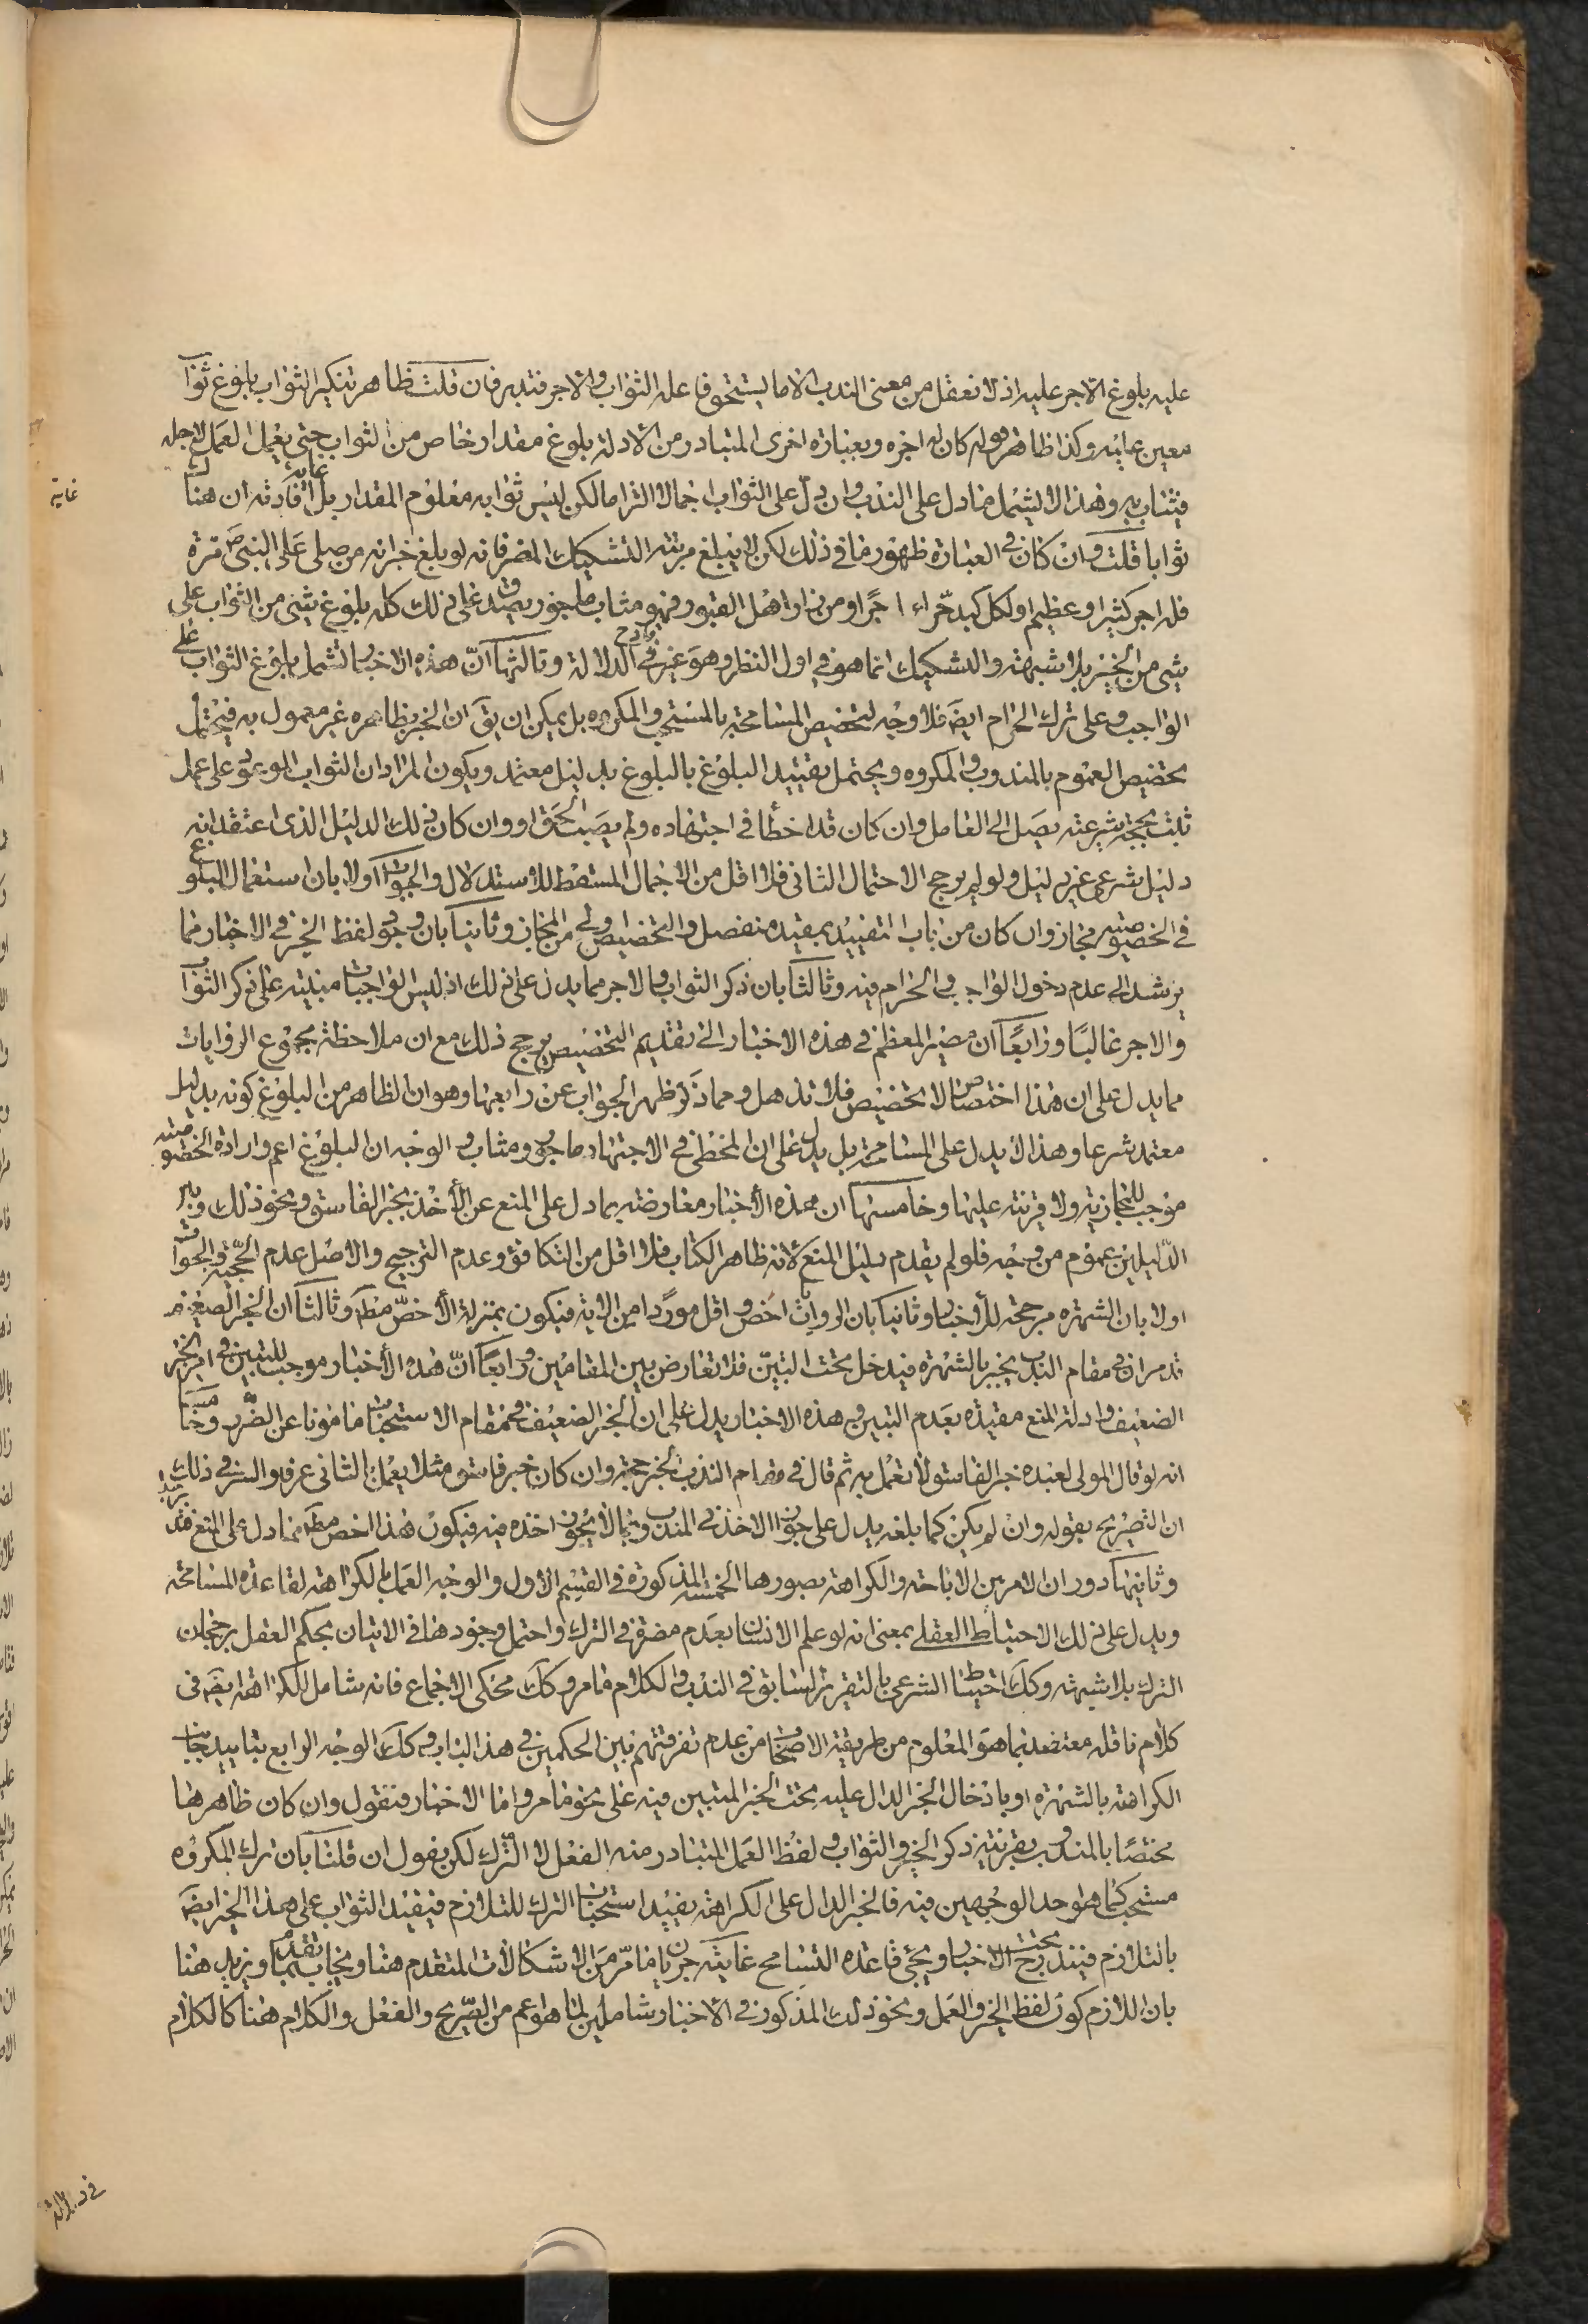 عليه بلوغ الاجر عليه اذ لا نعقل من معنى الندب الا ما يستحق فاعله الثواب والاجر فتدبر فان قلت ظاهر تنكير الثواب بلوغ ثواب
معين عليه وكذا ظاهر قوله كان له اجره وبعبارة اخرى المتبادر من الادلة بلوغ مقدار خاص من الثواب حتى يعمل العمل لاجله
فيثاب به وهذا لا يشمل ما دل على الندب وان دل على الثواب اجمالا التزاما لكن ليس ثوابه معلوم المقدار بل غاية افادته ان هنا
ثوابا قلت وان كان في العبارة ظهور ما في ذلك لكن لا يبلغ مرتبة التشكيك المضر فانه لو بلغ خبر انه من صلى على النبي ص مرة
فله اجر كثير او عظيم او لكل كبد حراء اجرا ومن زار اهل القبور فهو مثاب ماجور يصدق على ذلك كله بلوغ شيء من الثواب على
شيء من الخير بلا شبهة والتشكيك انما هو في اول النظر وهو غير قادح في الدلالة وثالثها ان هذه الاخبار تشمل بلوغ الثواب على
الواجب وعلى ترك الحرام ايضا فلا وجه لتخصيص المسامحة بالمستحب والمكروه بل يمكن ان يق ان الخبر بظاهره غير معمول به فيحتمل
تخصيص العموم بالمندوب والمكروه ويحتمل تقييد البلوغ بالبلوغ بدليل معتمد ويكون المراد ان الثواب الموعود على عمل
ثبت بحجة شرعية يصل الى العامل وان كان قد اخطأ في اجتهاده ولم يصب الحق او وان كان ذلك الدليل الذي اعتقد انه
دليل شرعي غير دليل ولو لم يرجح الاحتمال الثاني فلا اقل من الاجمال المسقط للاستدلال والجواب اولا بان استعمال البلوغ
في الخصوصية مجاز وان كان من باب التقييد بمقيد منفصل والتخصيص اولى من المجاز وثانيا بان وجود لفظ الخير في الاخبار مما
يرشد الى عدم دخول الواجب والحرام فيه وثالثا بان ذكر الثواب والاجر مما يدل على ذلك اذ ليس الواجبات مبنية على ذكر الثواب
والاجر غالبا ورابعا ان مصير المعظم في هذه الاخبار الى تقديم التخصيص يرجح ذلك مع ان ملاحظة مجموع الروايات
مما يدل على ان هذا اختصاص لا تخصيص فلا تذهل ومما ذكر ظهر الجواب عن رابعها وهو ان الظاهر من البلوغ كونه بدليل
معتمد شرعا وهذا لا يدل على المسامحة بل يدل على ان المخطئ في الاجتهاد ماجور ومثاب والوجه ان البلوغ اعم وارادة الخصوصية
موجب للمجازية ولا قرينة عليها وخامسها ان هذه الاخبار معارضة بما دل على المنع عن الأخذ بخبر الفاسق ونحو ذلك وبين
الدليلين عموم من وجه فلو لم يقدم دليل المنع لانه ظاهر الكتاب فلا اقل من التكافؤ وعدم الترجيح والاصل عدم الحجية والجواب
اولا بان الشهرة مرجحة للاخبار وثانيا بان الروايات اخص واقل موردا من الاية فيكون بمنزلة الأخص مط وثالثا ان الخبر الضعيف
قد مر ان في مقام الندب يجبر بالشهرة فيدخل تحت التبين فلا تعارض بين المقامين ورابعا ان هذه الأخبار موجب للتبين في امر الخبر
الضعيف وادلة المنع مقيدة بعدم التبين وهذه الاخبار يدل على ان الخبر الضعيف في مقام الاستحباب مامونا عن الضرر وخامسا
انه لو قال المولى لعبده خبر الفاسق لا تعمل به ثم قال في مقام الندب الخبر حجة وان كان خبر فاسق مثلا يعمل بالثاني عرفا والسر في ذلك
ان التصريح بقوله وان لم يكن كما بلغه يدل على جواز الاخذ في المندوب بما لا يجوز اخذه فيه فيكون هذا اخص مط مما دل على المنع فتدبر
وثانيها دوران الامر بين الاباحة والكراهة بصورها الخمسة المذكورة في القسم الاول والوجه العمل بالكراهة لقاعدة المسامحة
ويدل على ذلك الاحتياط العقلي بمعنى انه لو علم الانسان بعدم مضرة في الترك واحتمل وجودها في الاتيان يحكم العقل برجحان
الترك بلا شبهة وكك احتياط الشرعي بالتقرير السابق في الندب والكلام ما مر وكك محكي الاجماع فانه شامل للكراهة ايضا في
كلام ناقله معتضد بما هو المعلوم من طريقة الاصحاب من عدم تفرقتهم بين الحكمين في هذا الباب وكك الوجه الرابع بتاييد جانب
الكراهة بالشهرة او بادخال الخبر الدال عليه تحت الخبر المتبين فيه على نحو ما مر واما الاخبار فنقول وان كان ظاهرها
مختصا بالمندوب بقرينة ذكر الخير والثواب ولفظ العمل المتبادر منه الفعل لا الترك لكن يقول ان قلنا بان ترك المكروه
مستحب كما هو احد الوجهين فيه فالخبر الدال على الكراهة يفيد استحباب الترك للتلازم فيفيد الثواب على هذا الخبر ايضا
بالتلازم فيندرج تحت الاخبار ويجئ قاعدة التسامح غايته جريان ما مر من الاشكالات المتقدم هنا ويجاب بما تقدم ونزيد هنا
بان اللازم كون لفظ الخير والعمل ونحو ذلك المذكور في الاخبار شاملين لما هو اعم من الصريح والفعل والكلام هنا كالكلام
غاية